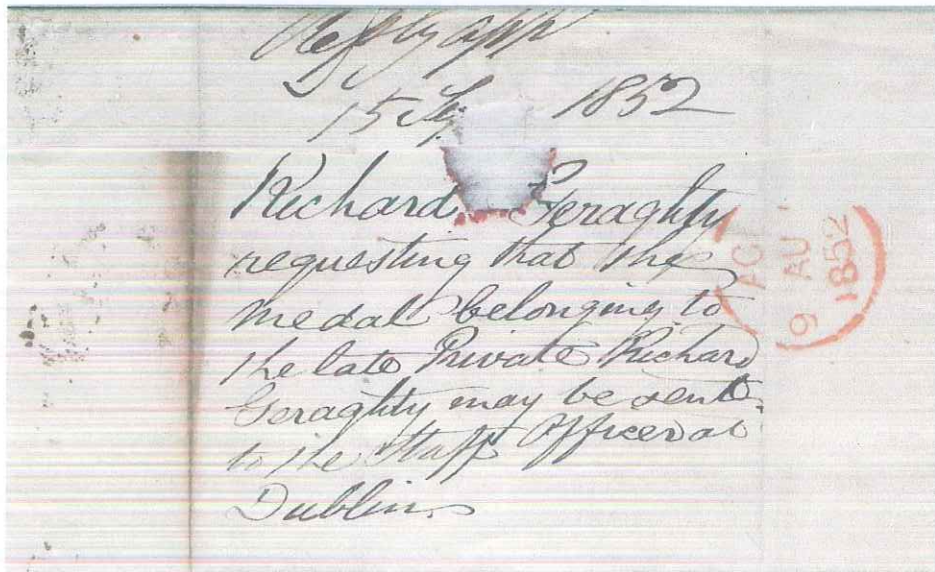 Reply
15 1852
Richard Geraghty
requesting that the
medal belonging to
the late Private Richard
Geraghty may be sent
to the Staff Officer at
Dublin.
AC
9 AU
1852